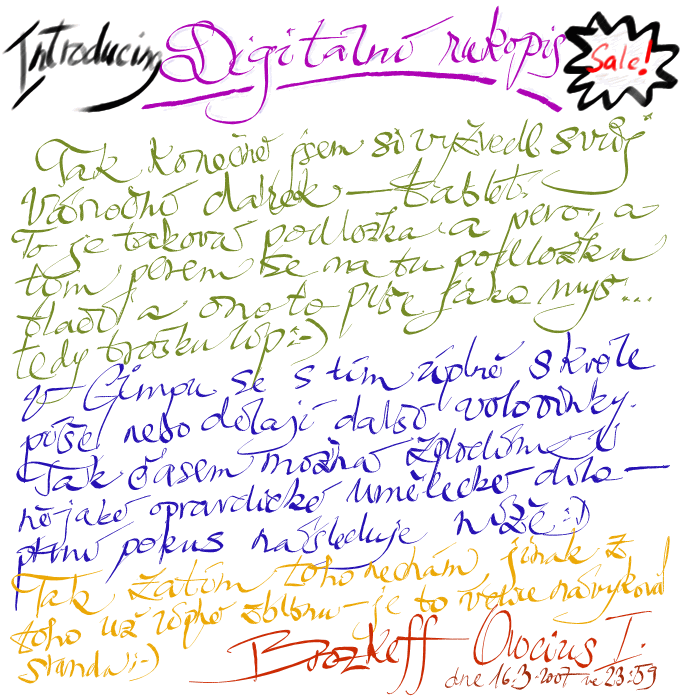 Introducing Digitální rukopis Sale!
Tak konečně jsem si vyzvedl svůj
Vánoční dárek – tablet.
To je taková podložka a pero, a
tím perem se na tu podložku
tlačí a ono to píše jako myš...
tedy trošku líp :-)
V Gimpu se s tím úplně skvěle
píše nebo dělají další volovinky.
Tak časem možná zplodím i
nějaké opravdické umělecké dílo –
první pokus následuje níže :D
Tak zatím toho nechám jinak z
toho už úplně zblbnu – je to velice návyková
standa ;-)
Brozkeff Ovocius I.
dne 16.3.2007 ve 23:59